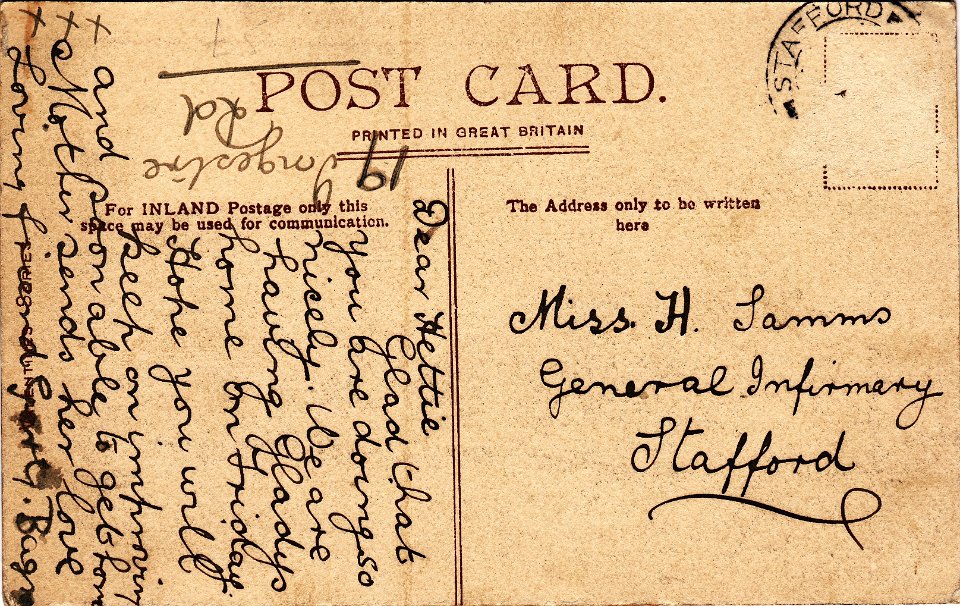 POST CARD.
PRINTED IN GREAT BRITAIN
For INLAND Postage only this
space may be used for communication.
The Address only to be written
here
STAFFORD
19
Ingestre
Rd
Dear Hettie
Glad that
you are doing so
nicely. We are
having Gladys
home on Friday.
Hope you will
keep on improving
and soon able to get home
Mother sends her love
Loving friend Gerty.
Miss. H. Samms
General Infirmary
Stafford